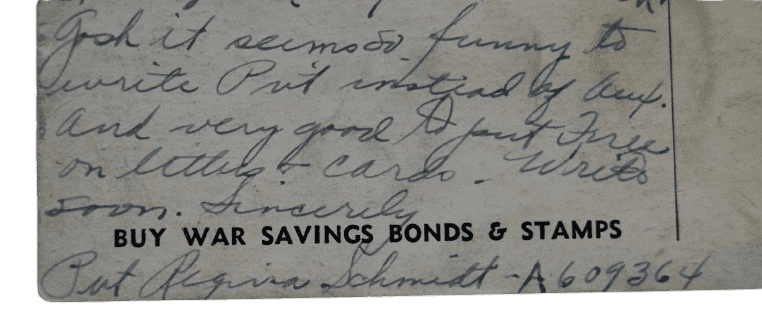 Gosh it seems so funny to
write Pvt instead of Aux.
And very good to put Free
on letters + cards. Write
soon. Sincerely
BUY WAR SAVINGS BONDS & STAMPS
Pvt Regina Schmidt - A609364